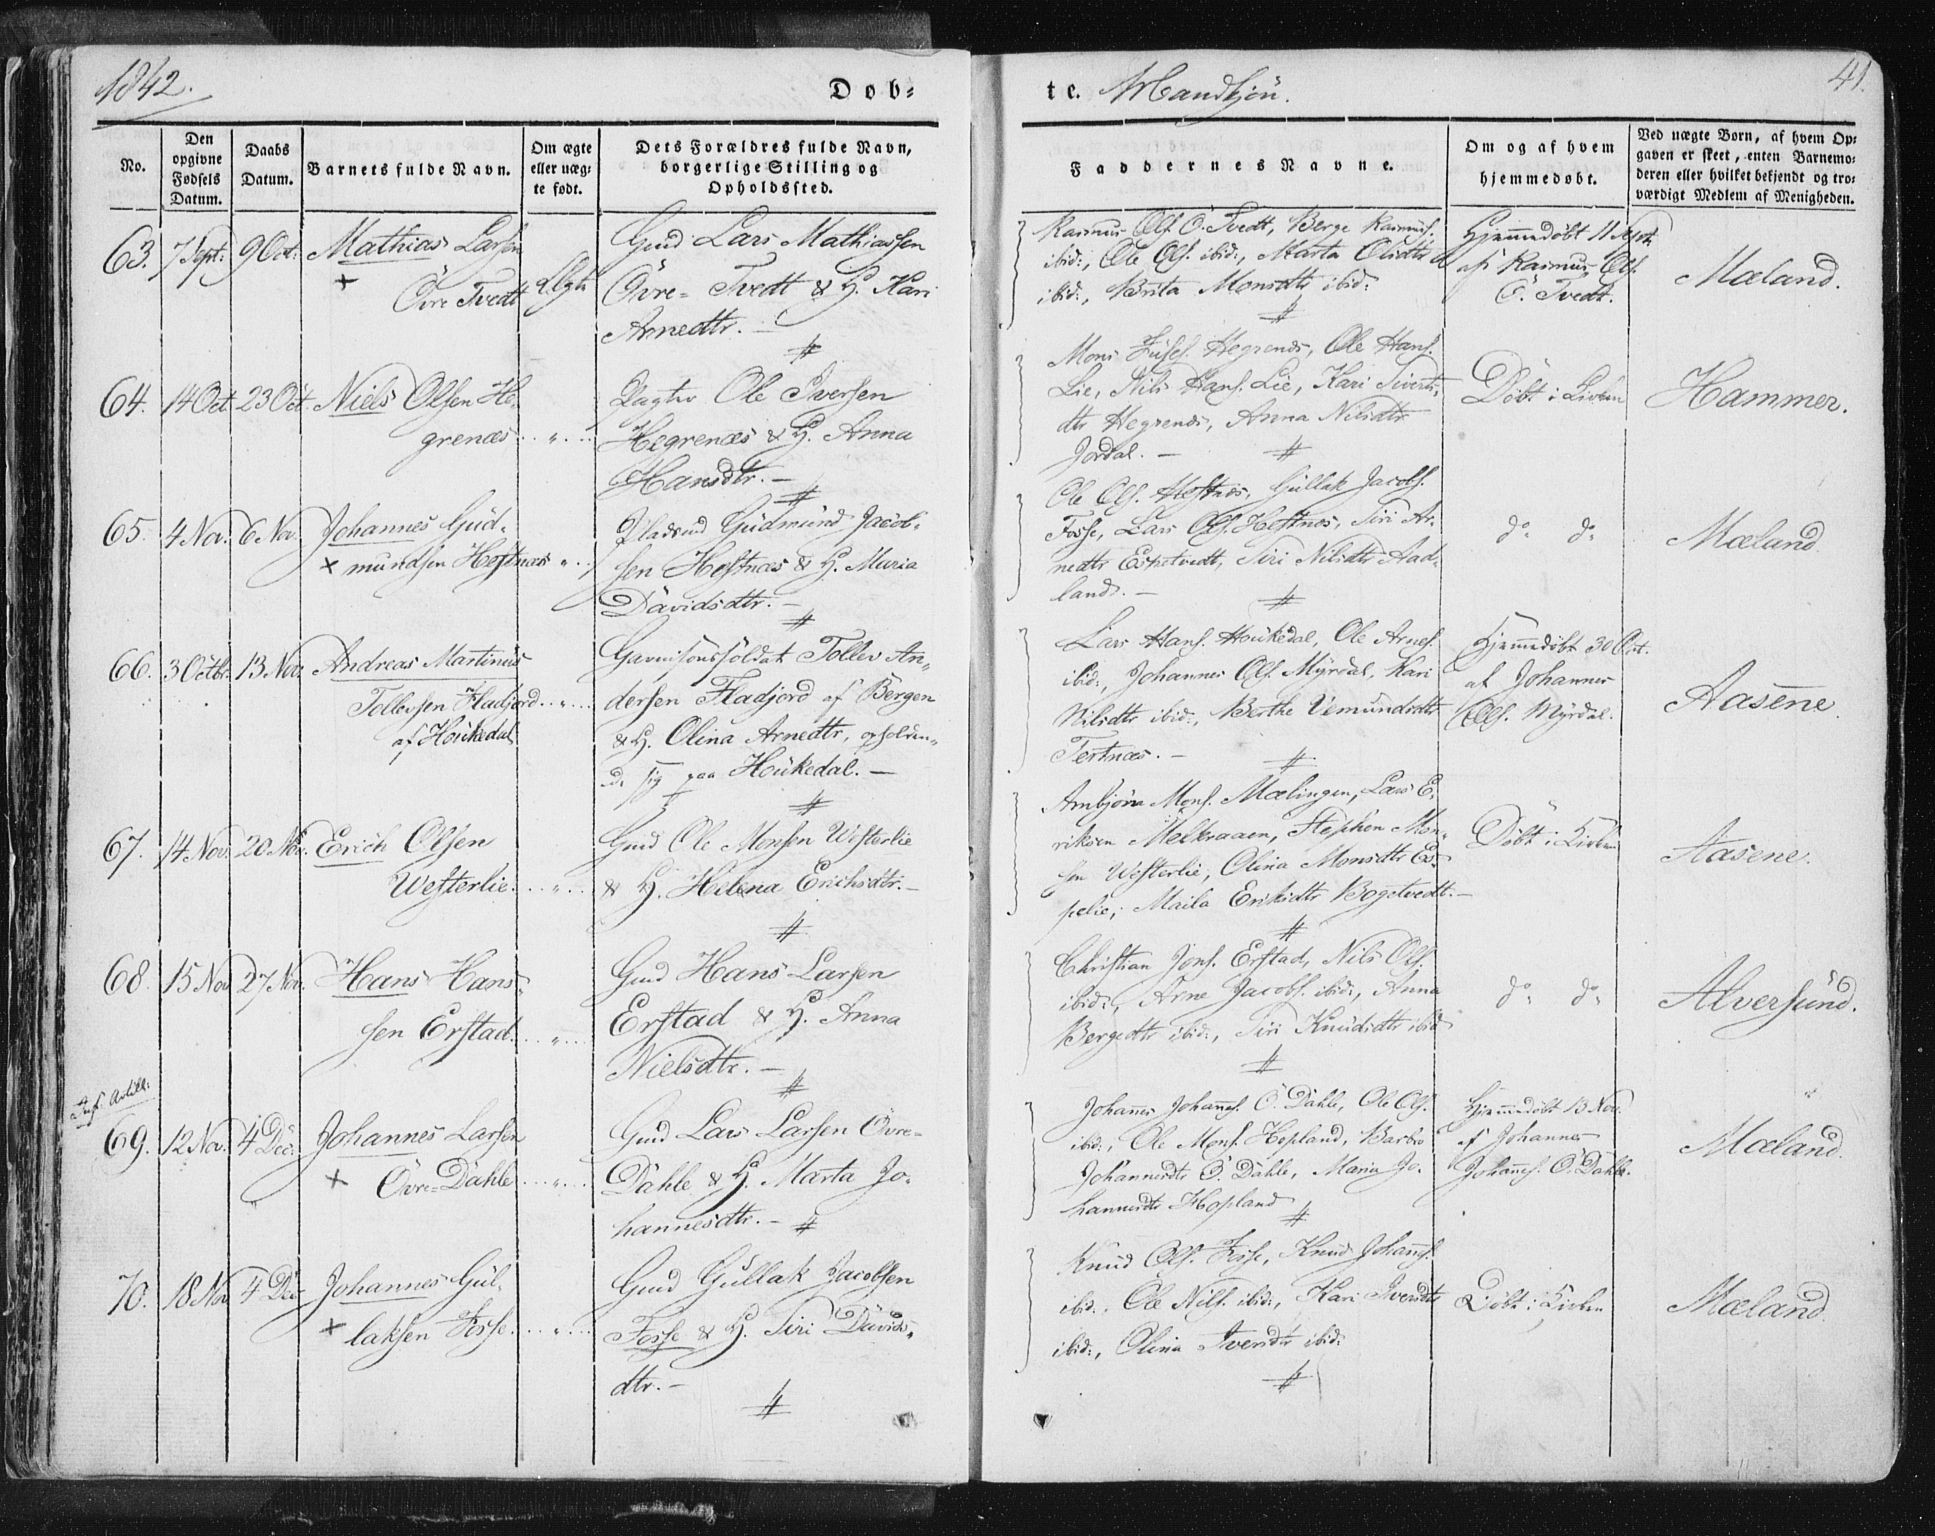 1842.
Døb-
te. Mandkjön.
41.
No.
Den opgivne Fødsels Datum.
Daabs Datum.
Barnets fulde Navn.
Om ægte eller uæg-
te født.
Dets Forældres fulde Navn,
borgerlige Stilling og
Opholdssted.
Faddernes Navne.
Om og af hvem
hjemmedøbt.
Ved uægte Børn, af hvem Op-
gaven er skeet, enten Barnemo-
deren eller hvilket bekjendt og tro-
værdigt Medlem af Menigheden.
63. 7 Sept: 9 Oct: Mathias Larsen
+ Övre Tvedt
Ægte
Gmd Lars Mathiassen
Övre- Tvedt & H. Kari
Arnedtr. -
Rasmus Ols. Ö. Tvedt, Berge Rasmus.
ibid:, Ole Ols. ibid:, Marta Olsdtr
ibid:, Brita Monsdtr ibid:
Hjemmedöbt 11 Sept.
af Rasmus Ols.
Ö. Tvedt.
Mæland.
64. 14 Oct 23 Oct. Niels Olsen He-
grenæs
Ole Iversen
Hegrenæs & H. Anna
Hansdtr. -
Mons Hegrenæs, Ole Hans.
Lie, Nils Hans. Lie, Kari Siverts-
dtr Hegrenæs, Anna Nilsdtr
Jordal. -
Döbt i Kirken
Hammer.
65. 4 Nov. 6 Nov. Johannes Gud-
+ mundsen Hestnæs
Pladsmd Gudmund Jacob-
sen Hestnæs & H. Maria
Davidsdtr. -
Ole Ols. Hestnæs, Gullak Jacobs.
Fosse, Lars Ols. Hestnæs, Siri Ar-
nedtr Espetvedt, Siri Nilsdtr Aad-
land. -
do do
Mæland.
66. 3 Octbr. 13 Nov. Andreas Martinus
Tollevsen Fladjord
af Houkedal
Garnisonssoldat Tollev An-
dersen Fladjord af Bergen
& H. Olina Arnedtr, opholden-
de sig paa Houkedal. -
Lars Hans. Houkedal, Ole Arnes.
ibid:, Johannes Ols. Myrdal, Kari
Nilsdtr ibid:, Berthe Vemundsdtr
Tertnæs. -
Hjemmedöbt 30 Oct.
af Johannes
Ols. Myrdal.
Aasene.
67. 14 Nov. 20 Nov. Erich Olsen
Westerlie.
Gmd Ole Monsen Westerlie
& H. Helena Erichsdtr. -
Anbjörn Mons. Mælingen, Lars E-
riksen Melkraaen, Stephen Mon-
sen Westerlie, Olina Monsdtr Es-
pelie, Maila Eriksdtr Bogetvedt. -
Döbt i Kirken
Aasene.
68. 15 Nov. 27 Nov. Hans Hans-
sen Erstad.
Gmd Hans Larsen
Erstad & H. Anna
Nielsdtr. -
Christian Jons. Erstad, Nils Ols.
ibid:, Arne Jacobs. ibid:, Anna
Bergedtr ibid:, Siri Knudsdtr ibid:
do do
Alversund.
69. 12 Nov. 4 Dec. Johannes Larsen
+ Övre-Dahle
Gmd Lars Larsen Övre-
Dahle & H. Marta Jo-
hannesdtr. -
Johannes Johannes. Ö. Dahle, Ole Ols.
ibid:, Ole Mons. Hopland, Barbro
Johannesdtr Ö. Dahle, Maria Jo-
hannesdtr Hopland
Hjemmedöbt 13 Nov.
af Johannes
Johannes. Ö. Dahle.
Mæland.
70. 18 Nov 4 Dec. Johannes Gul-
+ laksen Fosse.
Gmd Gullak Jacobsen
Fosse & H. Siri Davids-
dtr. -
Knud Ols. Fosse, Knud Johannes.
ibid:, Ole Nils. ibid:, Kari Iversdtr
ibid:, Olina Iversdtr ibid:
Döbt i Kirken
Mæland.